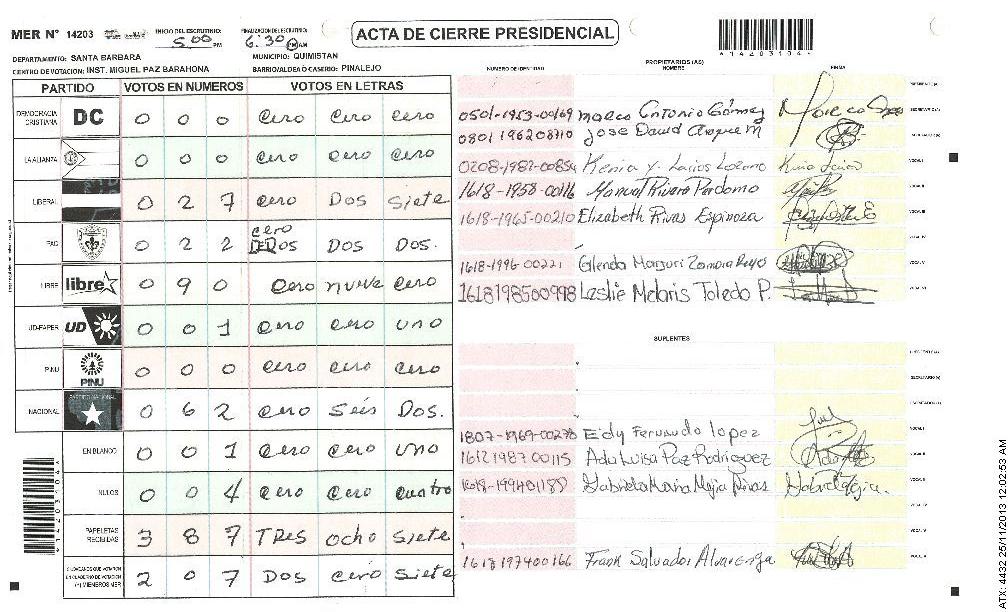 MER N° 14203
INICIO DEL ESCRUTINIO: 5:00 PM
FINALIZACION DEL ESCRUTINIO: 6:30 PM AM
ACTA DE CIERRE PRESIDENCIAL
*14203104*
DEPARTAMENTO: SANTA BARBARA
MUNICIPIO: QUIMISTAN
CENTRO DE VOTACION: INST. MIGUEL PAZ BARAHONA
BARRIO/ALDEA O CASERIO: PINALEJO
PARTIDO VOTOS EN NUMEROS VOTOS EN LETRAS
DEMOCRACIA CRISTIANA DC 0 0 0 cero cero cero
LA ALIANZA 0 0 0 cero cero cero
LIBERAL 0 2 7 cero Dos siete
PAC 0 2 2 cero Dos Dos Dos.
LIBRE libre 0 9 0 cero nueve cero
UD-FAPER UD 0 0 1 cero cero uno
PINU PINU 0 0 0 cero cero cero
NACIONAL PARTIDO NACIONAL 0 6 2 cero seis Dos.
EN BLANCO 0 0 1 cero cero uno
NULOS 0 0 4 cero cero cuatro
PAPELETAS RECIBIDAS 3 8 7 Tres ocho siete
CIUDADANOS QUE VOTARON EN CUADERNO DE VOTACION (+) MIEMBROS MER 2 0 7 Dos cero siete
*14203104*
PROPIETARIOS (AS)
NUMERO DE IDENTIDAD NOMBRE FIRMA
PRESIDENTE (A)
0501-1953-00169 Marco Antonio Gómez
SECRETARIO (A)
0801 196208710 Jose David
ESCRUTADOR (A)
0208-1987-00854 Kenia y. Larios Lozano
VOCAL I
1618-1958-00116 Manuel Rivera Perdomo
VOCAL II
1618-1965-00210 Elizabeth Rivas Espinoza
VOCAL III
VOCAL IV
1618-1996-00221 Glenda Zamora
VOCAL V
1618198500998 Leslie Toledo P.
VOCAL VI
SUPLENTES
PRESIDENTE (A)
SECRETARIO (A)
ESCRUTADOR (A)
1807-1969-00278 Eidy Fernando Lopez
VOCAL I
1612 1987 00115 Ada Luisa Paz Rodriguez
VOCAL II
Gabriela Maria Mejia Rivas
VOCAL III
VOCAL IV
VOCAL V
1618 197400166 Frank Salvador Alvarenga
VOCAL VI
ATX: 4432 25/11/2013 12:02:53 AM